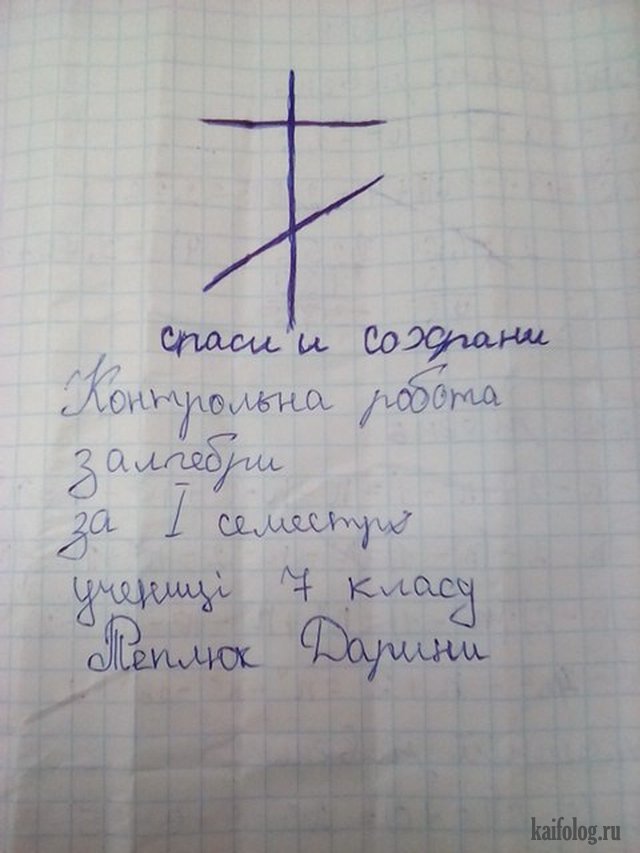 спаси и сохрани
Контрольна робота
з алгебри
за I семестр
учениці 7 класу
Теплюк Дарини
kaifolog.ru